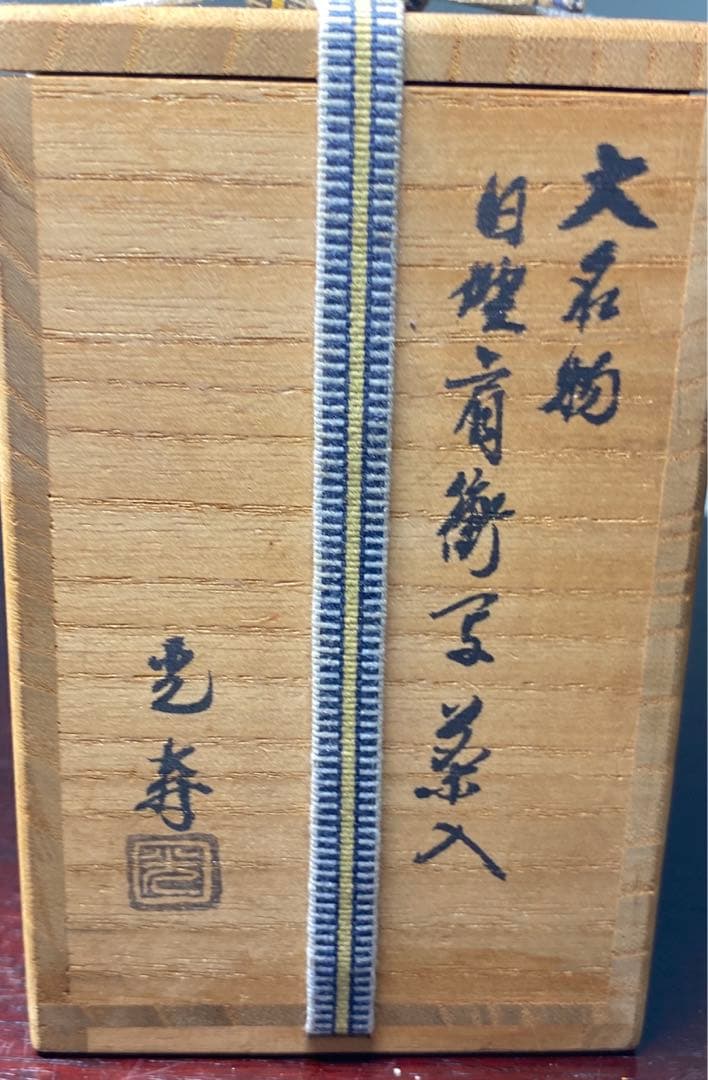 大名物
日野肩衝写茶入
光寿
光